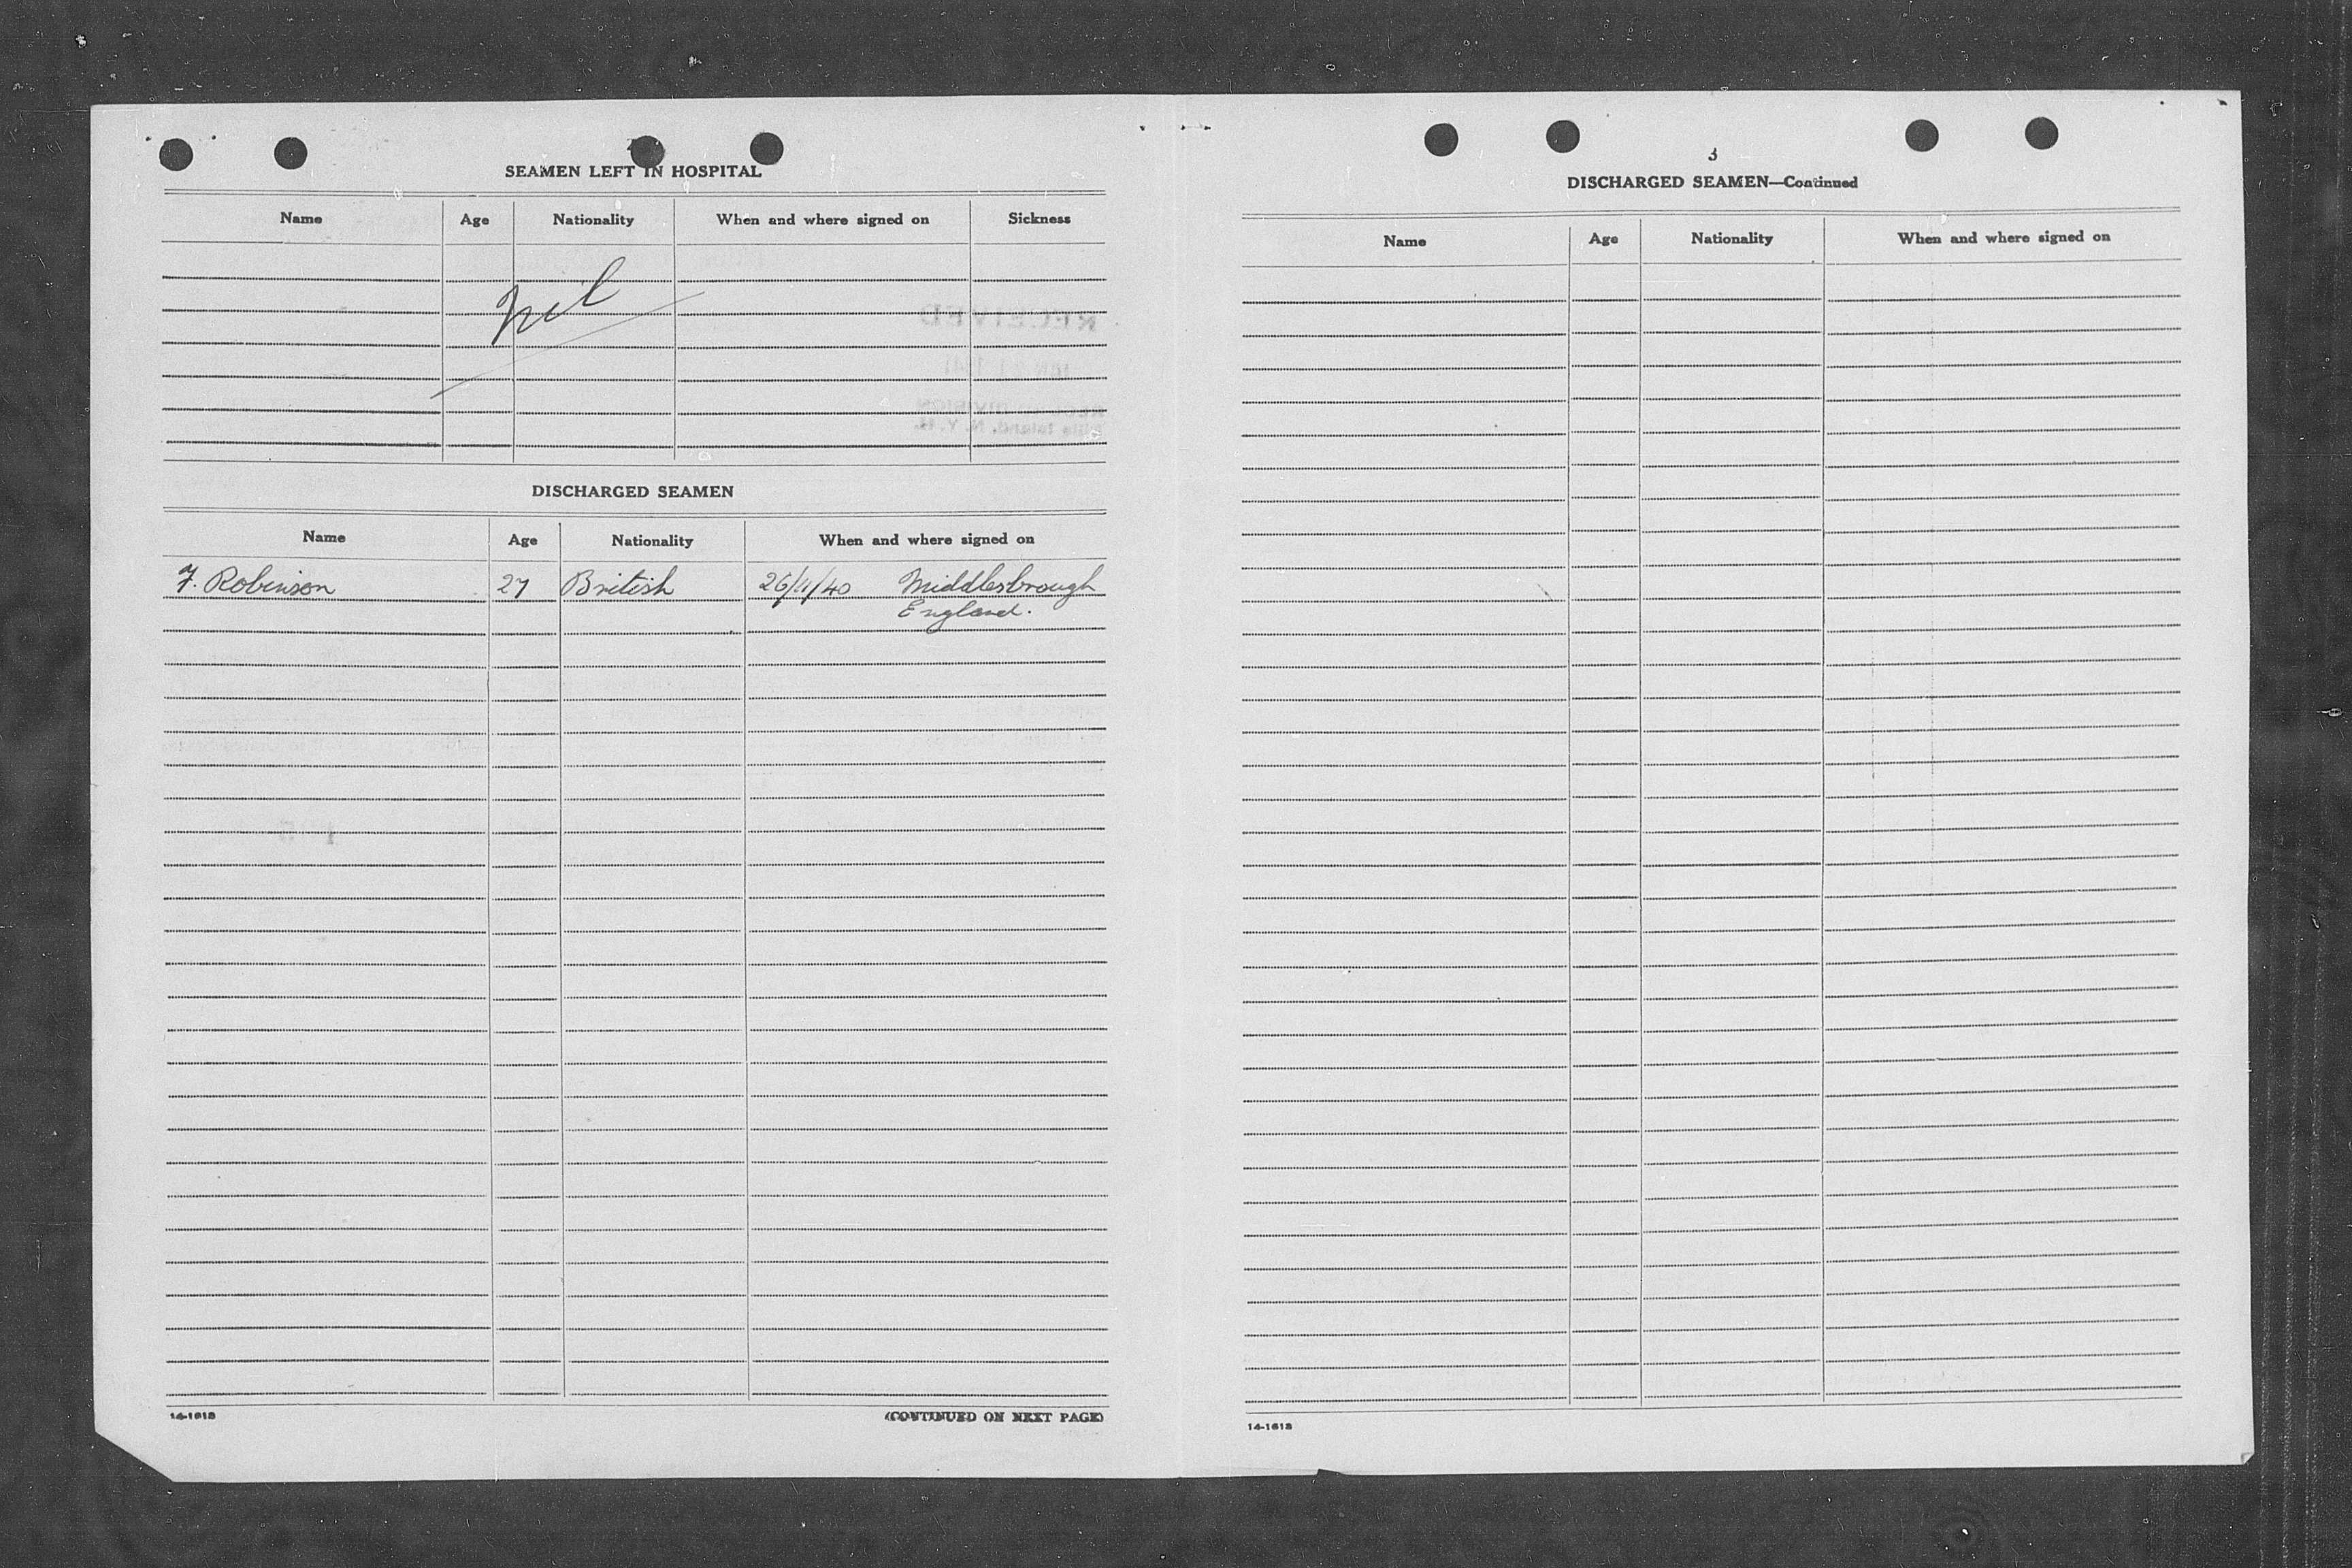 SEAMEN LEFT IN HOSPITAL
Name Age Nationality When and where signed on Sickness
Nil
DISCHARGED SEAMEN
Name Age Nationality When and where signed on
F. Robinson 27 British 26/11/40 Middlesbrough
England.
14-1613
(CONTINUED ON NEXT PAGE)
3
DISCHARGED SEAMEN—Continued
Name Age Nationality When and where signed on
14-1613